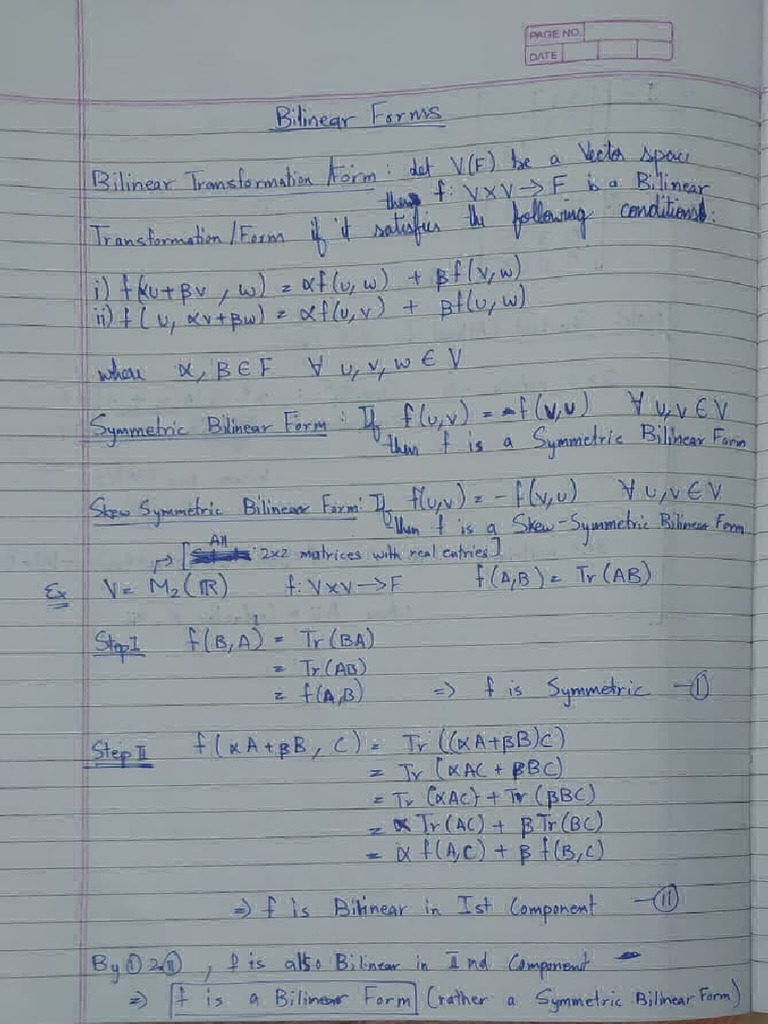 PAGE NO.
DATE
Bilinear Forms
Bilinear Transformation Form : Let V(F) be a Vector space
then f: V×V→F is a Bilinear
Transformation/Form if it satisfies the following conditions:
i) f(αu+βv, w) = αf(u,w) + βf(v,w)
ii) f(u, αv+βw) = αf(u,v) + βf(u,w)
where α, β ∈ F ∀ u, v, w ∈ V
Symmetric Bilinear Form : If f(u,v) = f(v,u) ∀ u,v ∈ V
then f is a Symmetric Bilinear Form
Skew Symmetric Bilinear Form: If f(u,v) = - f(v,u) ∀ u,v ∈ V
then f is a Skew-Symmetric Bilinear Form
→ [All 2x2 matrices with real entries]
Ex V = M₂(ℝ) f: V×V→F f(A,B) = Tr(AB)
Step I f(B,A) = Tr(BA)
= Tr(AB)
= f(A,B) => f is Symmetric —Ⓘ
Step II f(αA+βB, C) = Tr((αA+βB)C)
= Tr(αAC + βBC)
= Tr(αAC) + Tr(βBC)
= α Tr(AC) + β Tr(BC)
= α f(A,C) + β f(B,C)
=> f is Bilinear in Ist Component —(II)
By Ⓘ & (II), f is also Bilinear in IInd Component
=> f is a Bilinear Form (rather a Symmetric Bilinear Form)